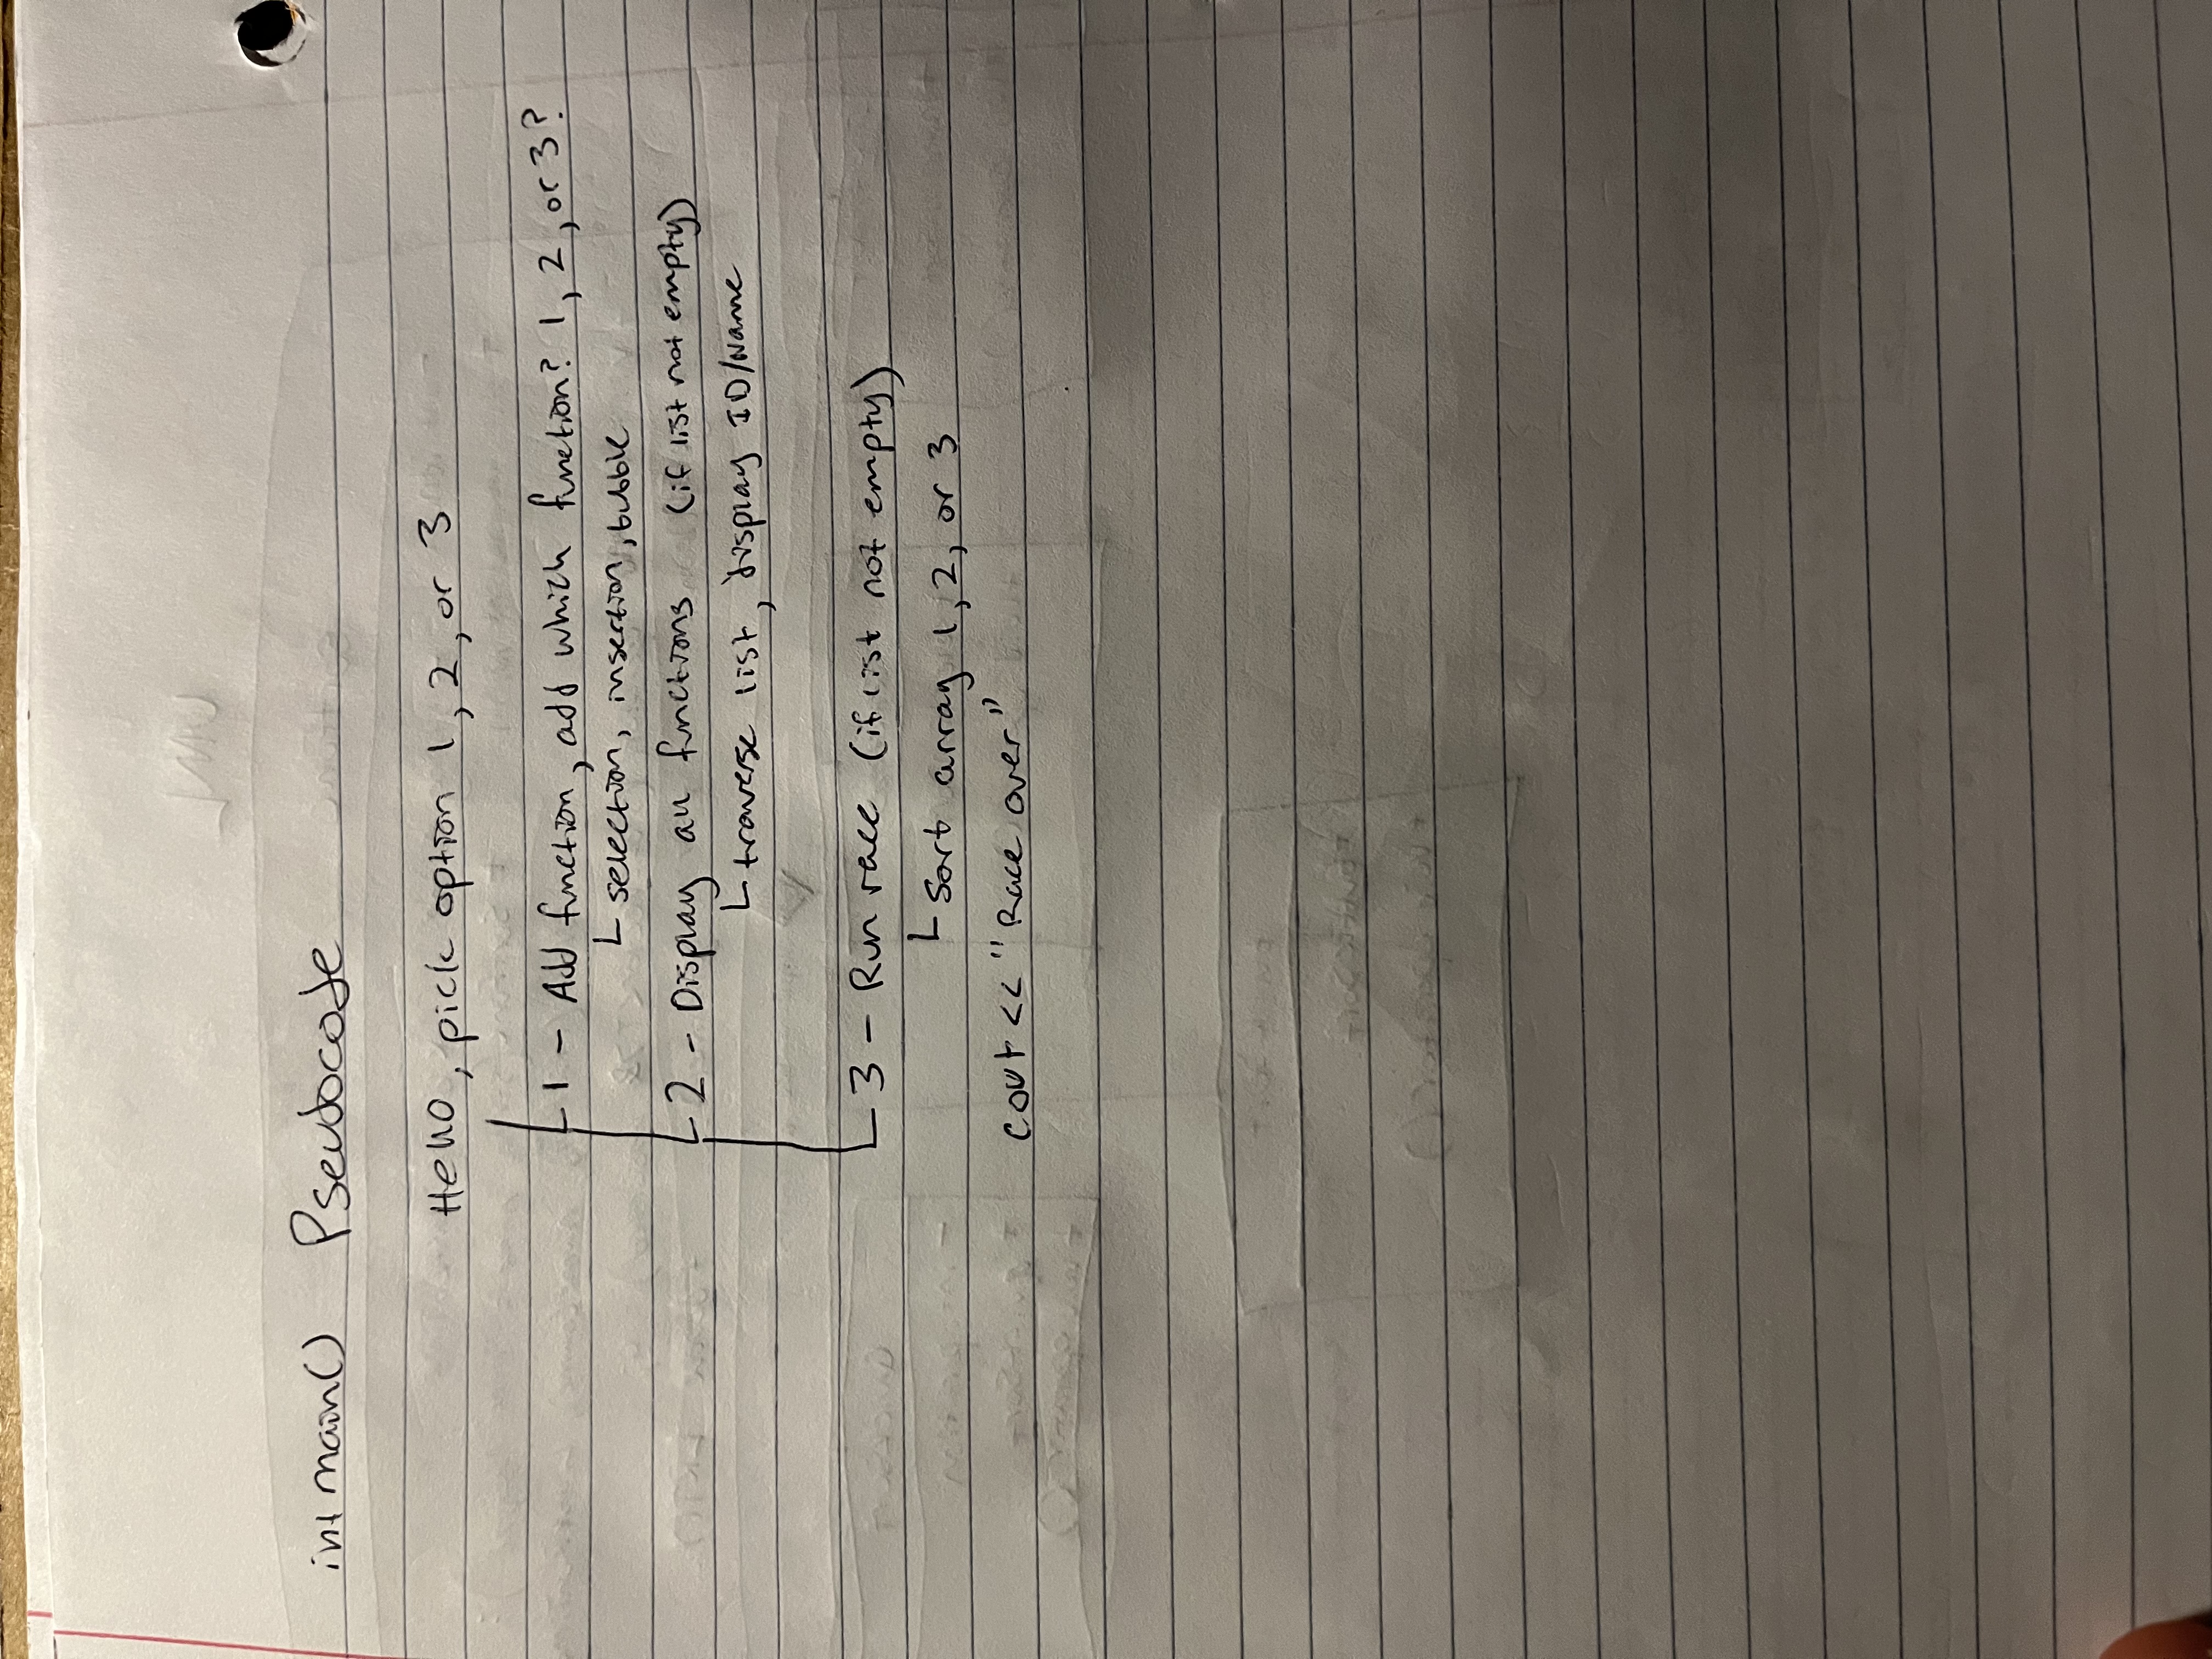 int main() Pseudocode
Hello, pick option 1, 2, or 3
1 - Add function, add which function? 1, 2, or 3?
selection, insertion, bubble
2 - Display all functions (if list not empty)
traverse list, display ID/Name
3 - Run race (if list not empty)
Sort array 1, 2, or 3
cout << "Race over"